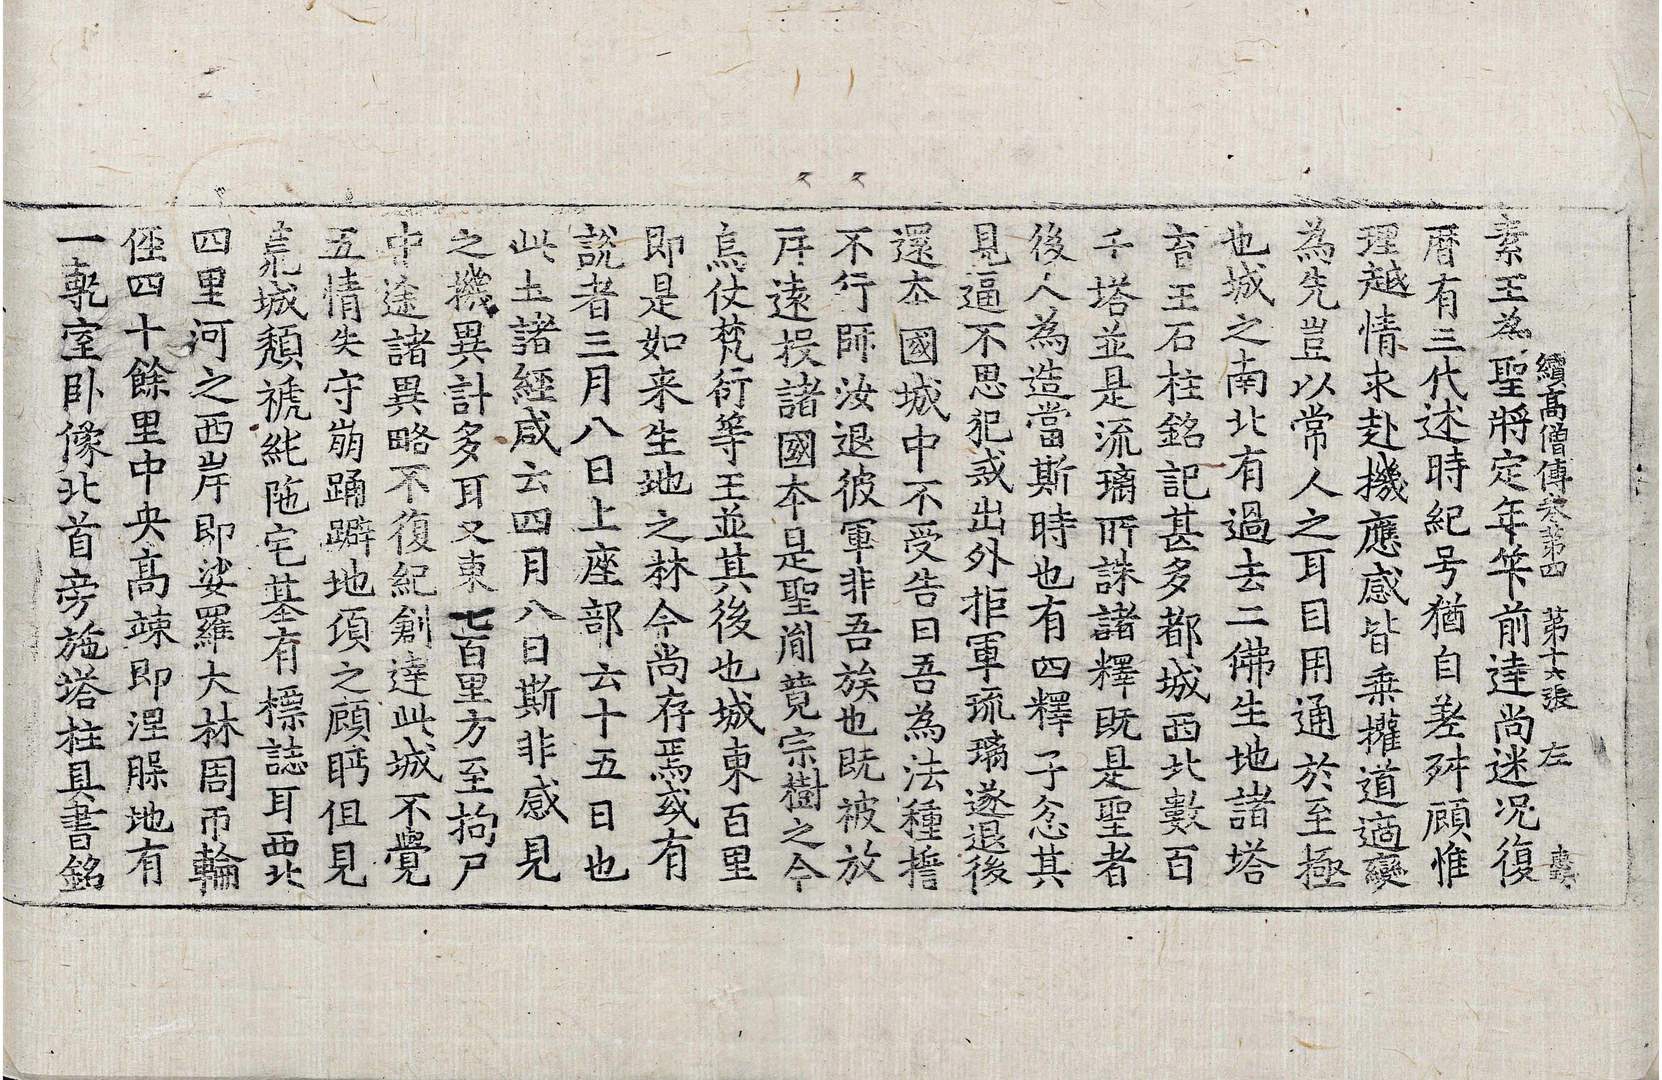 續高僧傳卷第四　第十六張　左
素王為聖將定年筭前達尚迷況復
曆有三代述時紀号猶自差舛顧惟
理越情求赴機應感皆乗攉道適變
為先豈以常人之耳目用通於至極
也城之南北有過去二佛生地諸塔
育王石柱銘記甚多都城西北數百
千塔並是流璃所誅諸釋既是聖者
後人為造當斯時也有四釋子忿其
見逼不思犯戒出外拒軍琉璃遂退後
還夲國城中不受告曰吾為法種誓
不行師汝退彼軍非吾族也既被放
斥遠投諸國夲是聖胤竟宗樹之今
烏仗梵衍等王並其後也城東百里
即是如来生地之林今尚存焉或有
說者三月八日上座部云十五日也
此土諸經咸云四月八日斯非感見
之機異計多耳又東七百里方至拘尸
中途諸異略不復紀創達此城不覺
五情失守崩踊躃地頃之顧眄但見
荒城頹褫純陁宅基有標誌耳西北
四里河之西岸即娑羅大林周帀輪
徑四十餘里中央高竦即涅槃地有
一甎室卧像北首旁施塔柱具書銘